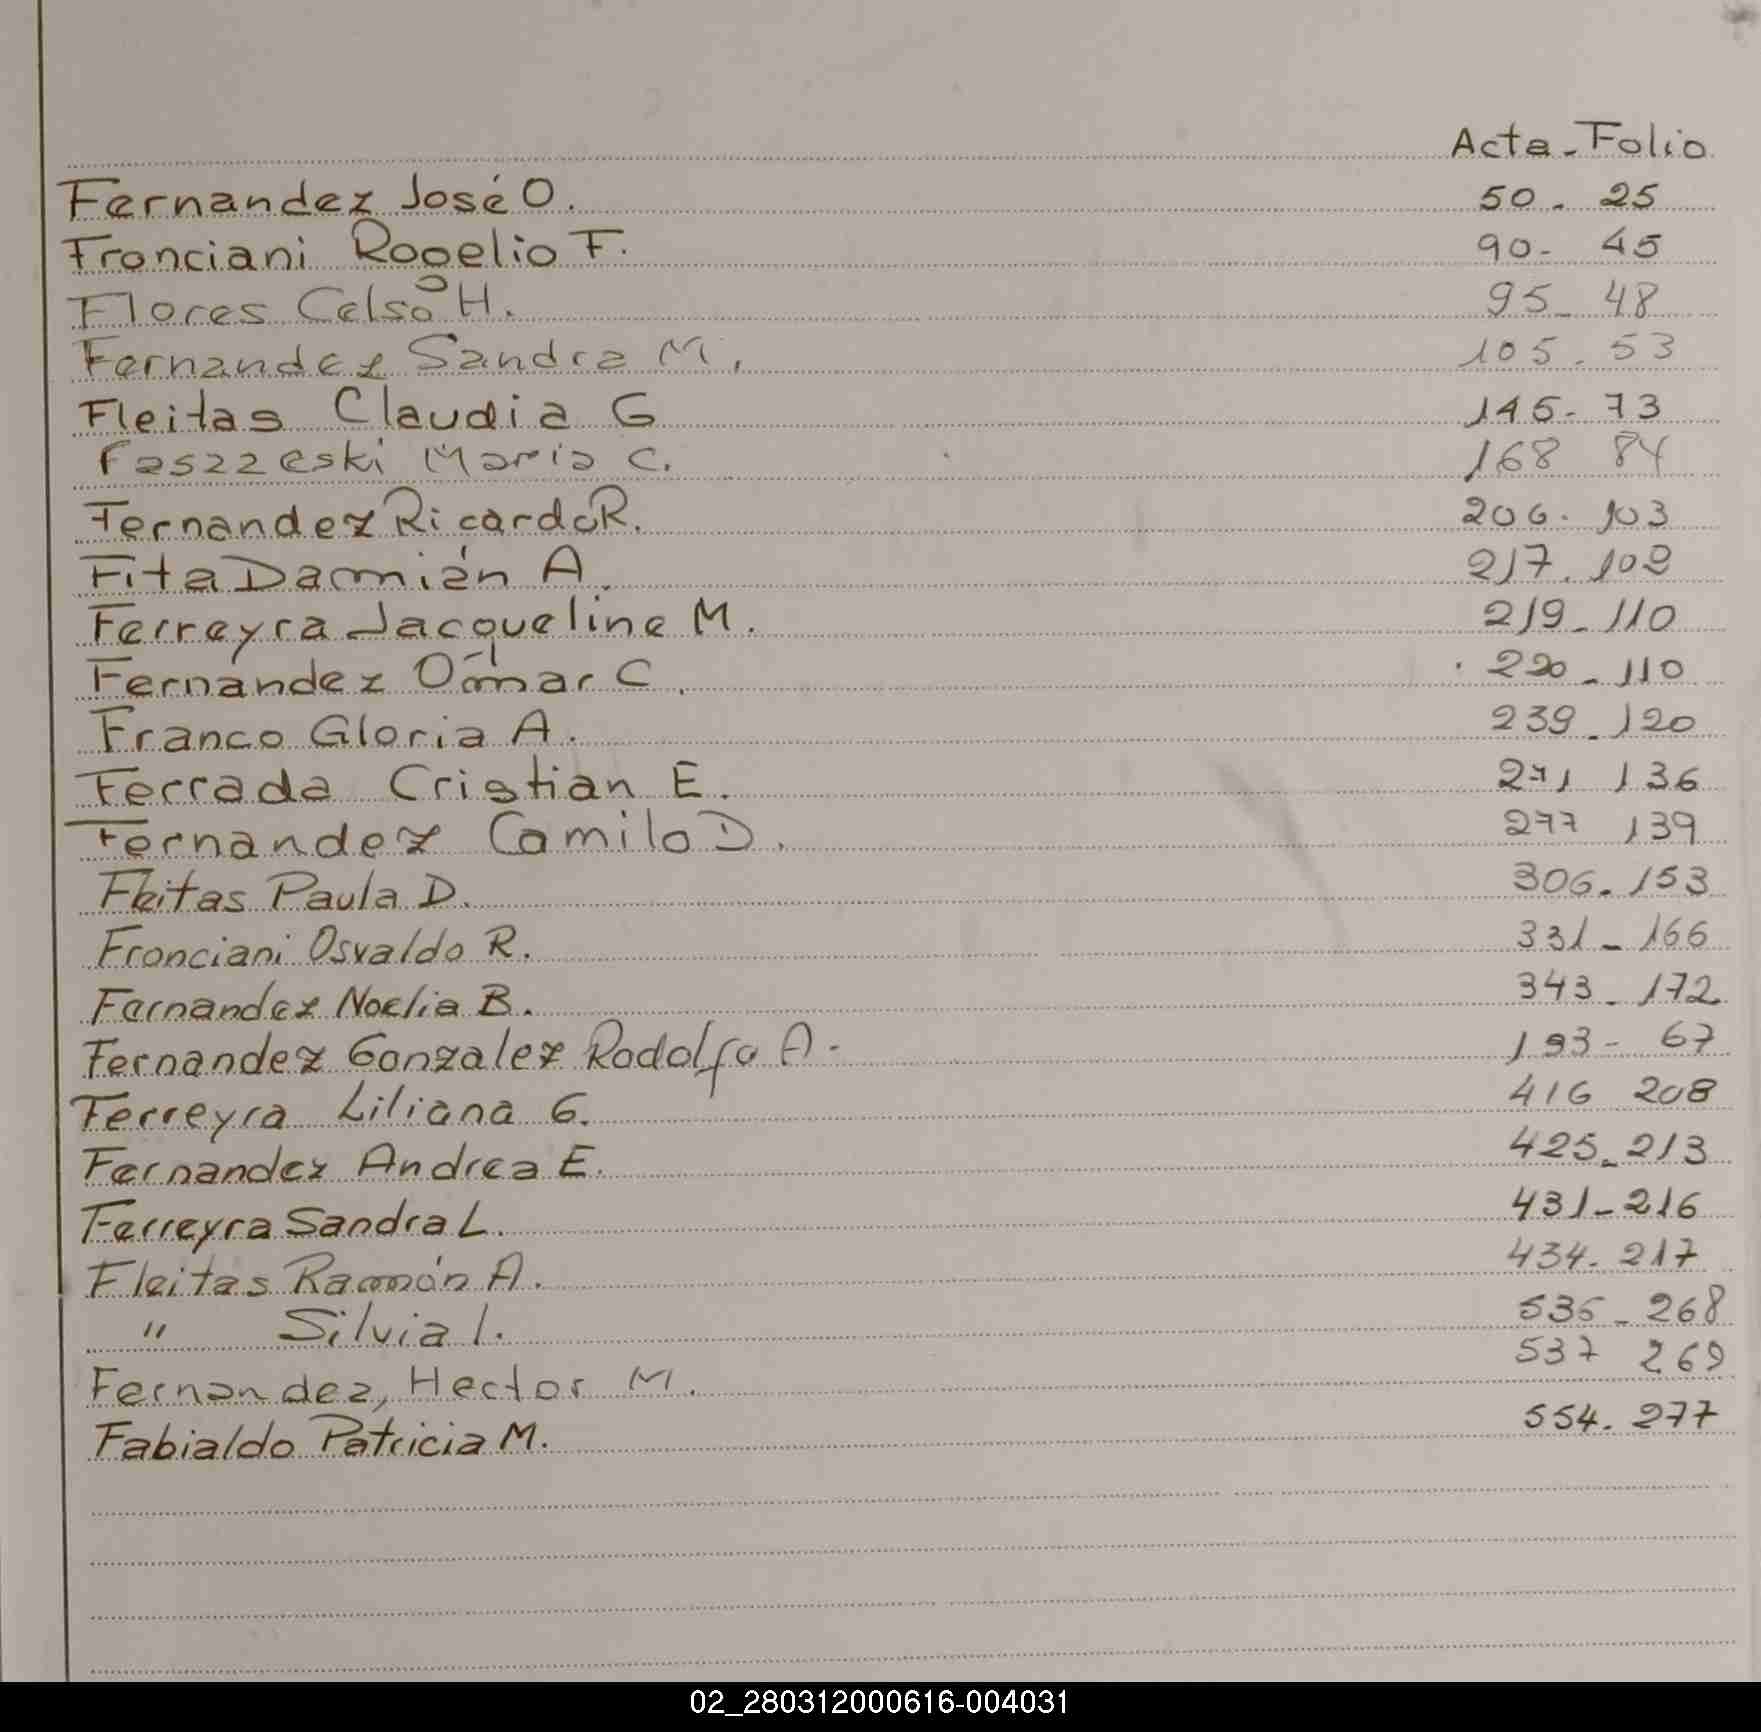 Acta - Folio
Fernandez José O. 50 - 25
Fronciani Rogelio F. 90 - 45
Flores Celso H. 95 - 48
Fernandez Sandra M. 105 - 53
Fleitas Claudia G 145 - 73
Faszzeski Maria C. 168 84
Fernandez Ricardo R. 206 - 103
Fita Damián A. 217 - 109
Ferreyra Jacqueline M. 219 - 110
Fernandez Omar C. 220 - 110
Franco Gloria A. 239 - 120
Ferrada Cristian E. 271 136
Fernandez Camilo D. 277 139
Fleitas Paula D. 306 - 153
Fronciani Osvaldo R. 331 - 166
Fernandez Noelia B. 343 - 172
Fernandez Gonzalez Rodolfo A - 193 - 67
Ferreyra Liliana G. 416 208
Fernandez Andrea E. 425 - 213
Ferreyra Sandra L. 431 - 216
Fleitas Ramón A. 434 - 217
" Silvia I. 535 - 268
Fernandez, Hector M. 537 269
Fabialdo Patricia M. 554 - 277
02_280312000616-004031